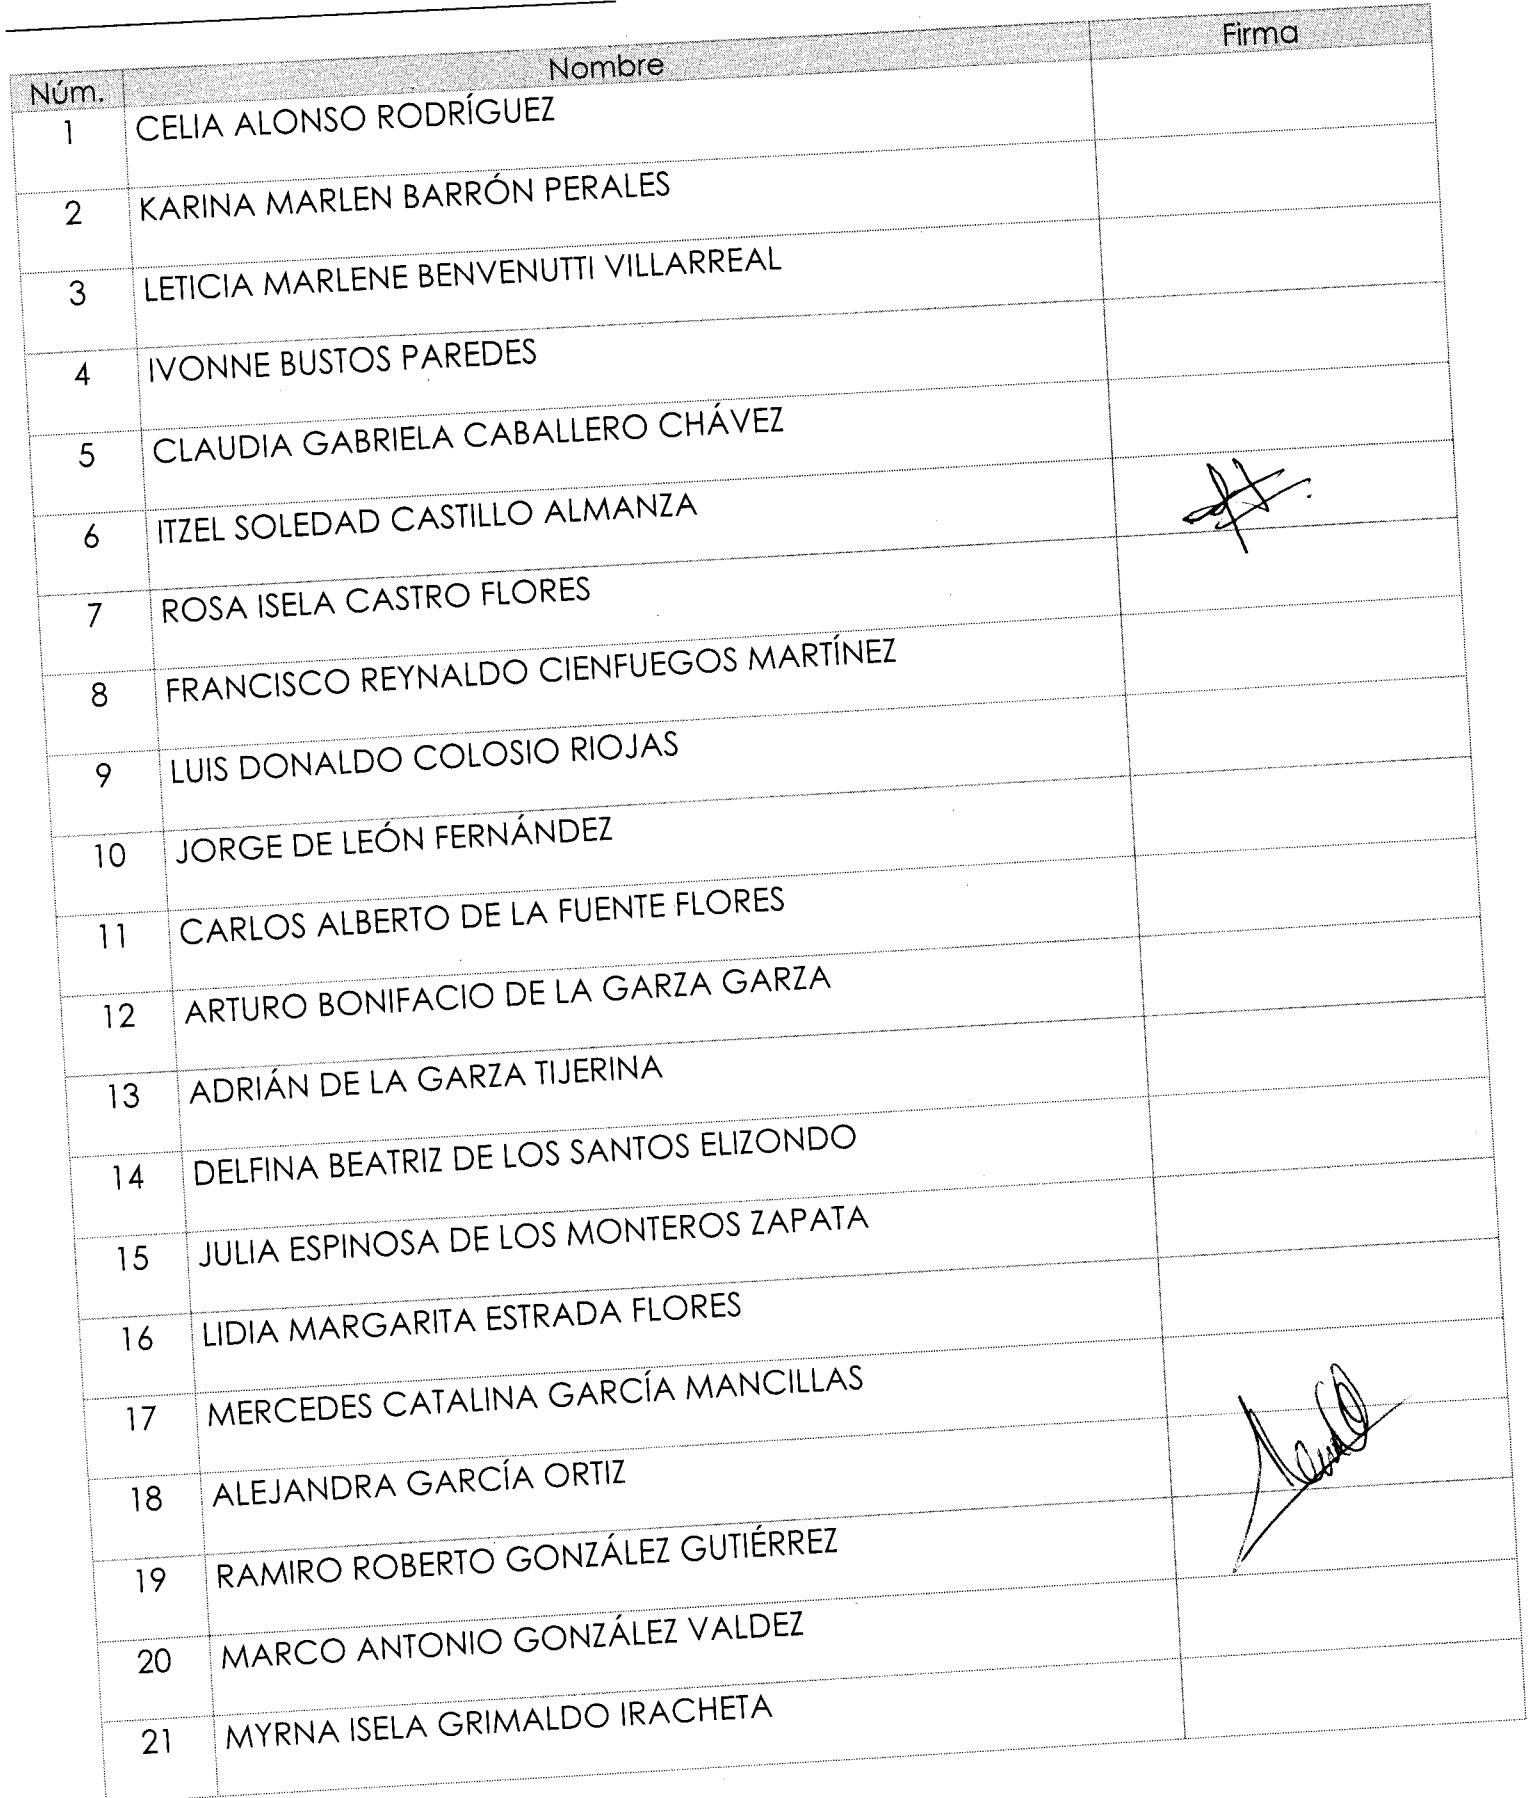 Núm. Nombre Firma
1 CELIA ALONSO RODRÍGUEZ
2 KARINA MARLEN BARRÓN PERALES
3 LETICIA MARLENE BENVENUTTI VILLARREAL
4 IVONNE BUSTOS PAREDES
5 CLAUDIA GABRIELA CABALLERO CHÁVEZ
6 ITZEL SOLEDAD CASTILLO ALMANZA
7 ROSA ISELA CASTRO FLORES
8 FRANCISCO REYNALDO CIENFUEGOS MARTÍNEZ
9 LUIS DONALDO COLOSIO RIOJAS
10 JORGE DE LEÓN FERNÁNDEZ
11 CARLOS ALBERTO DE LA FUENTE FLORES
12 ARTURO BONIFACIO DE LA GARZA GARZA
13 ADRIÁN DE LA GARZA TIJERINA
14 DELFINA BEATRIZ DE LOS SANTOS ELIZONDO
15 JULIA ESPINOSA DE LOS MONTEROS ZAPATA
16 LIDIA MARGARITA ESTRADA FLORES
17 MERCEDES CATALINA GARCÍA MANCILLAS
18 ALEJANDRA GARCÍA ORTIZ
19 RAMIRO ROBERTO GONZÁLEZ GUTIÉRREZ
20 MARCO ANTONIO GONZÁLEZ VALDEZ
21 MYRNA ISELA GRIMALDO IRACHETA